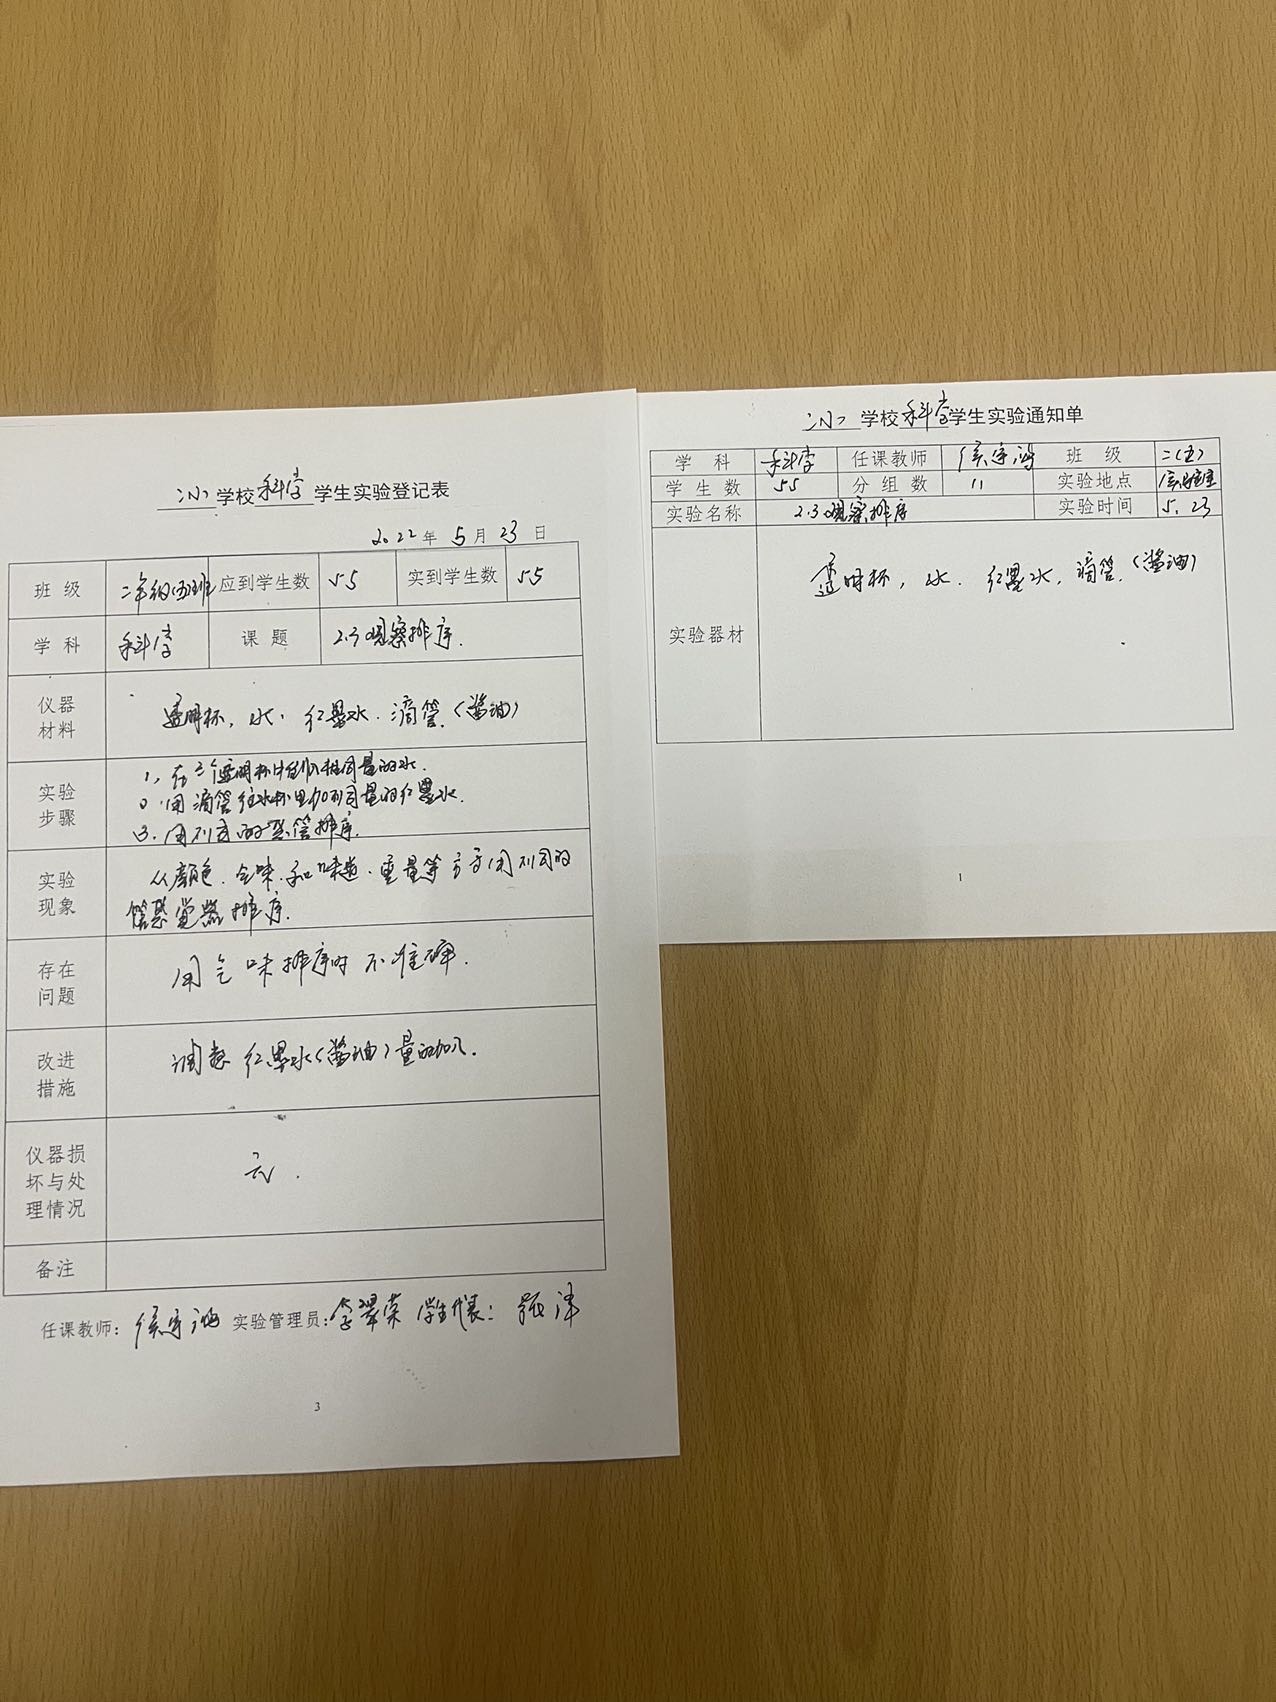 学校科学学生实验登记表
2022年5月23日
班级 二年级(五)班 应到学生数 55 实到学生数 55
学科 科学 课题 2.3观察排序.
仪器材料 透明杯, 水. 红墨水. 滴管.(酱油)
实验步骤 1, 在三个透明杯中倒入相同量的水.
2.用滴管往水杯里加不同量的红墨水.
3.用不同的感官排序.
实验现象 从颜色.气味.和味道.重量等方面用不同的
感觉器排序.
存在问题 用气味排序时不准确.
改进措施 调整红墨水(酱油)量的加入.
仪器损坏与处理情况 无.
备注
任课教师: 侯宇鸿 实验管理员: 李翠荣 学生代表: 张沣
3
学校科学学生实验通知单
学科 科学 任课教师 侯宇鸿 班级 二(五)
学生数 55 分组数 11 实验地点 实验室
实验名称 2.3观察排序 实验时间 5.23
实验器材 透明杯, 水. 红墨水, 滴管.(酱油)
1